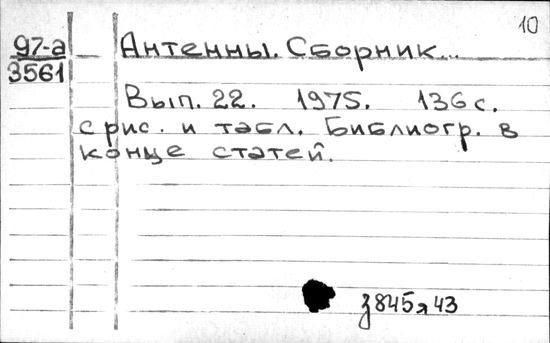 10
97-а Антенны. Сборник...
3561
Вып. 22. 1975. 136 с.
с рис. и табл. Библиогр. в
конце статей.
з845я43